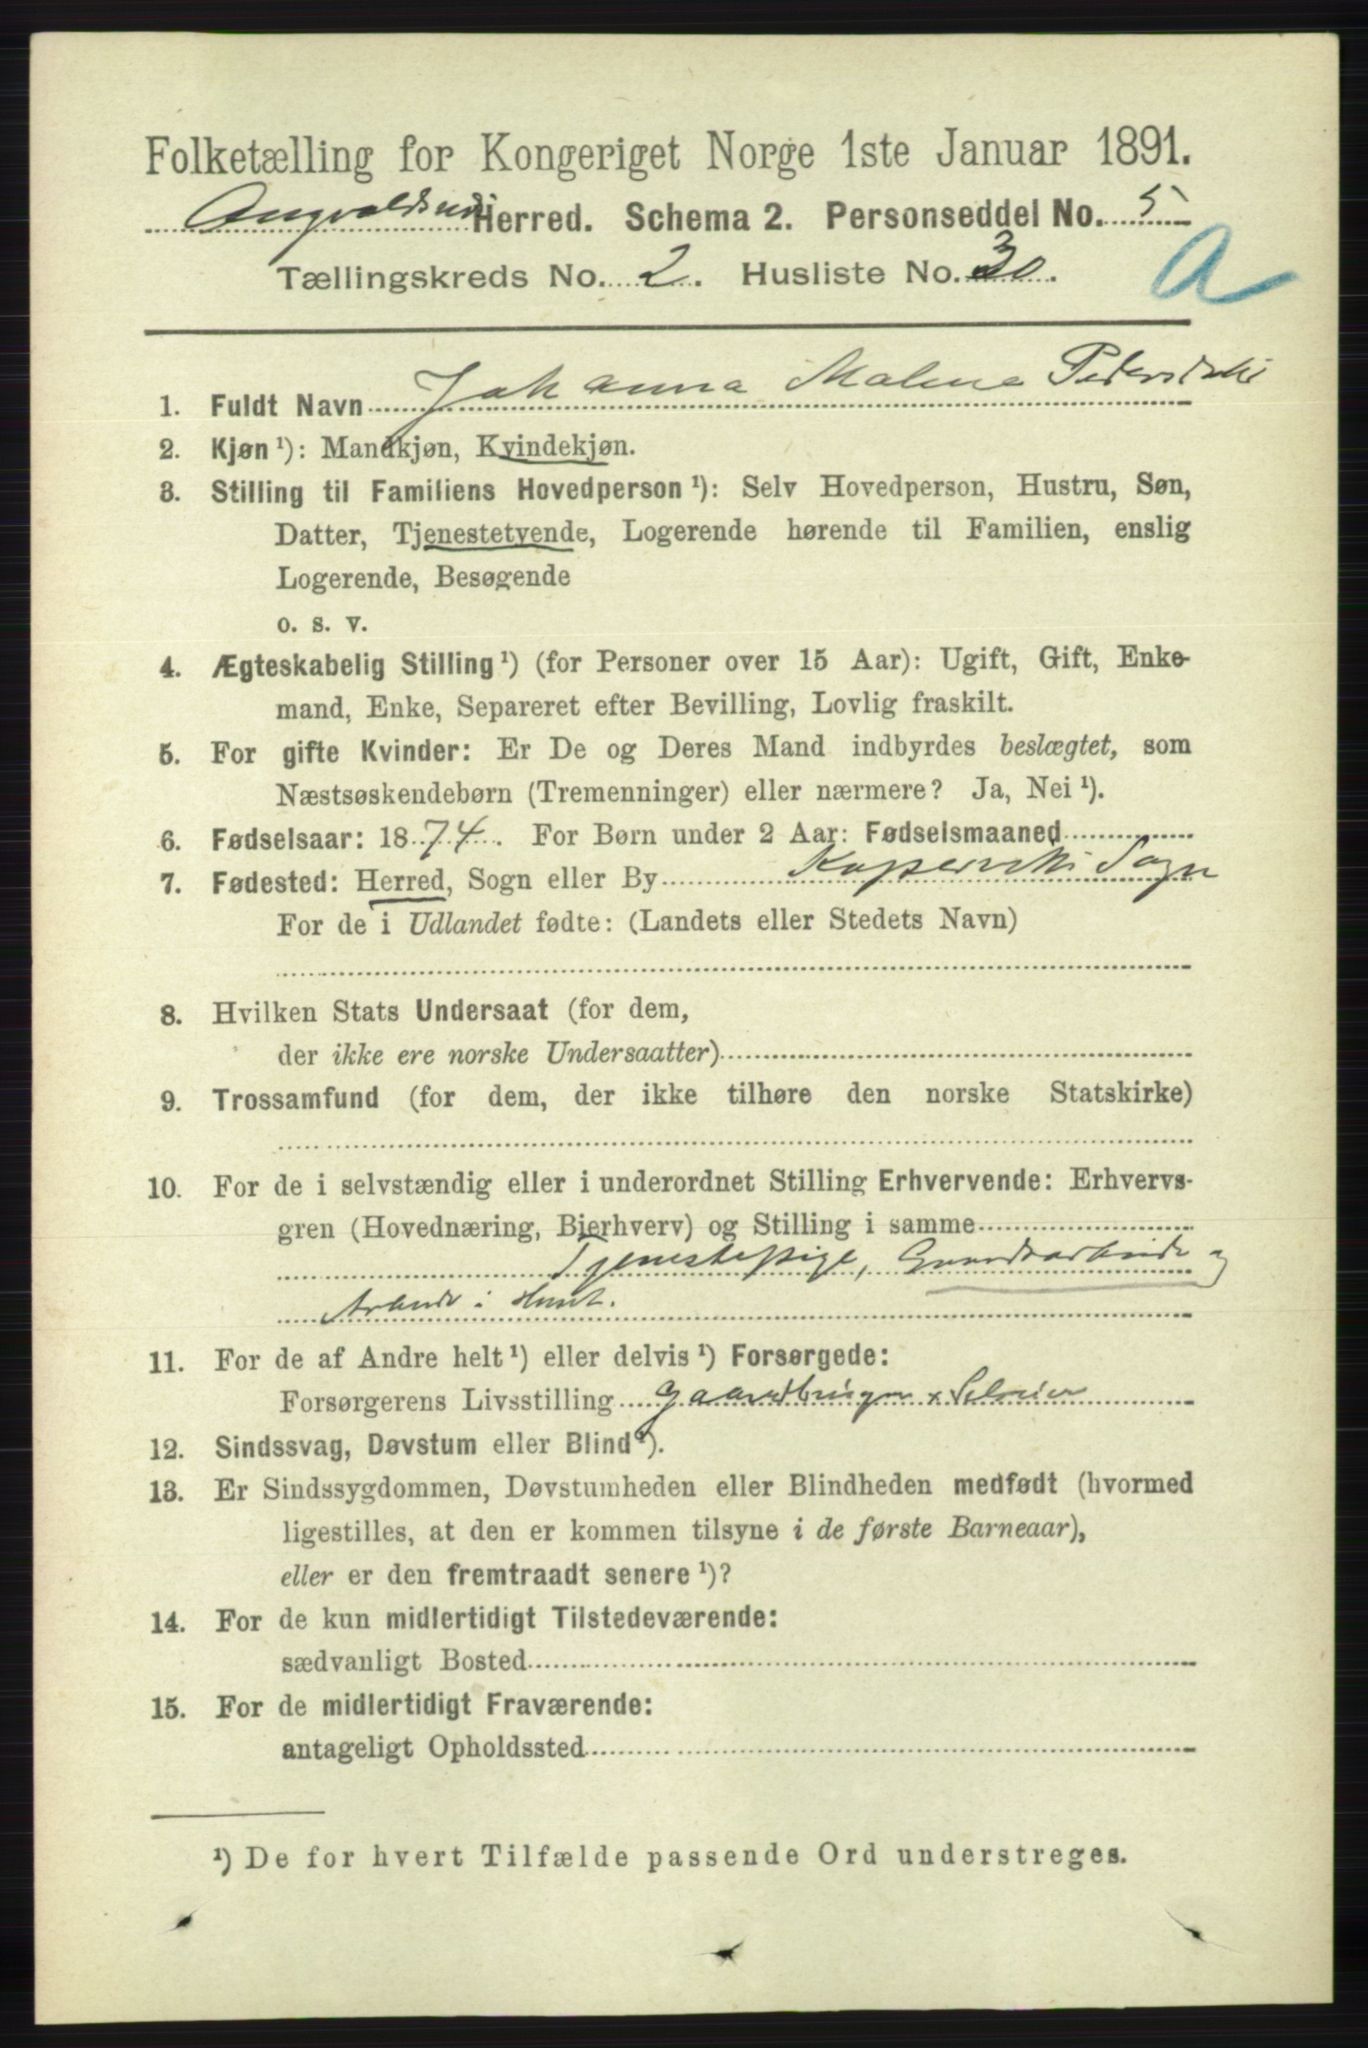 Folketælling for Kongeriget Norge 1ste Januar 1891.
Herred. Schema 2. Personseddel No. 5
Tællingskreds No. 2. Husliste No. 30.
A
1. Fuldt Navn Johanna Malene
2. Kjøn ¹): Mandkjøn, Kvindekjøn.
3. Stilling til Familiens Hovedperson ¹): Selv Hovedperson, Hustru, Søn,
Datter, Tjenestetyende, Logerende hørende til Familien, enslig
Logerende, Besøgende
o. s. v.
4. Ægteskabelig Stilling ¹) (for Personer over 15 Aar): Ugift, Gift, Enke-
mand, Enke, Separeret efter Bevilling, Lovlig fraskilt.
5. For gifte Kvinder: Er De og Deres Mand indbyrdes beslægtet, som
Næstsøskendebørn (Tremenninger) eller nærmere? Ja, Nei ¹).
6. Fødselsaar: 1874. For Børn under 2 Aar: Fødselsmaaned
7. Fødested: Herred, Sogn eller By Kopervik Sogn
For de i Udlandet fødte: (Landets eller Stedets Navn)
8. Hvilken Stats Undersaat (for dem,
der ikke ere norske Undersaatter)
9. Trossamfund (for dem, der ikke tilhøre den norske Statskirke)
10. For de i selvstændig eller i underordnet Stilling Erhvervende: Erhvervs-
gren (Hovednæring, Bierhverv) og Stilling i samme
Tjenestepige, Gaardsarbeide og
Arbeide i Huset.
11. For de af Andre helt ¹) eller delvis ¹) Forsørgede:
Forsørgerens Livsstilling Gaardbruger & Selveier
12. Sindssvag, Døvstum eller Blind ¹).
13. Er Sindssygdommen, Døvstumheden eller Blindheden medfødt (hvormed
ligestilles, at den er kommen tilsyne i de første Barneaar),
eller er den fremtraadt senere ¹)?
14. For de kun midlertidigt Tilstedeværende:
sædvanligt Bosted
15. For de midlertidigt Fraværende:
antageligt Opholdssted
¹) De for hvert Tilfælde passende Ord understreges.